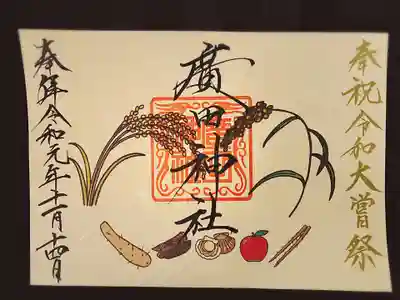 奉祝令和大嘗祭
廣田神社
奉拜令和元年十一月十四日